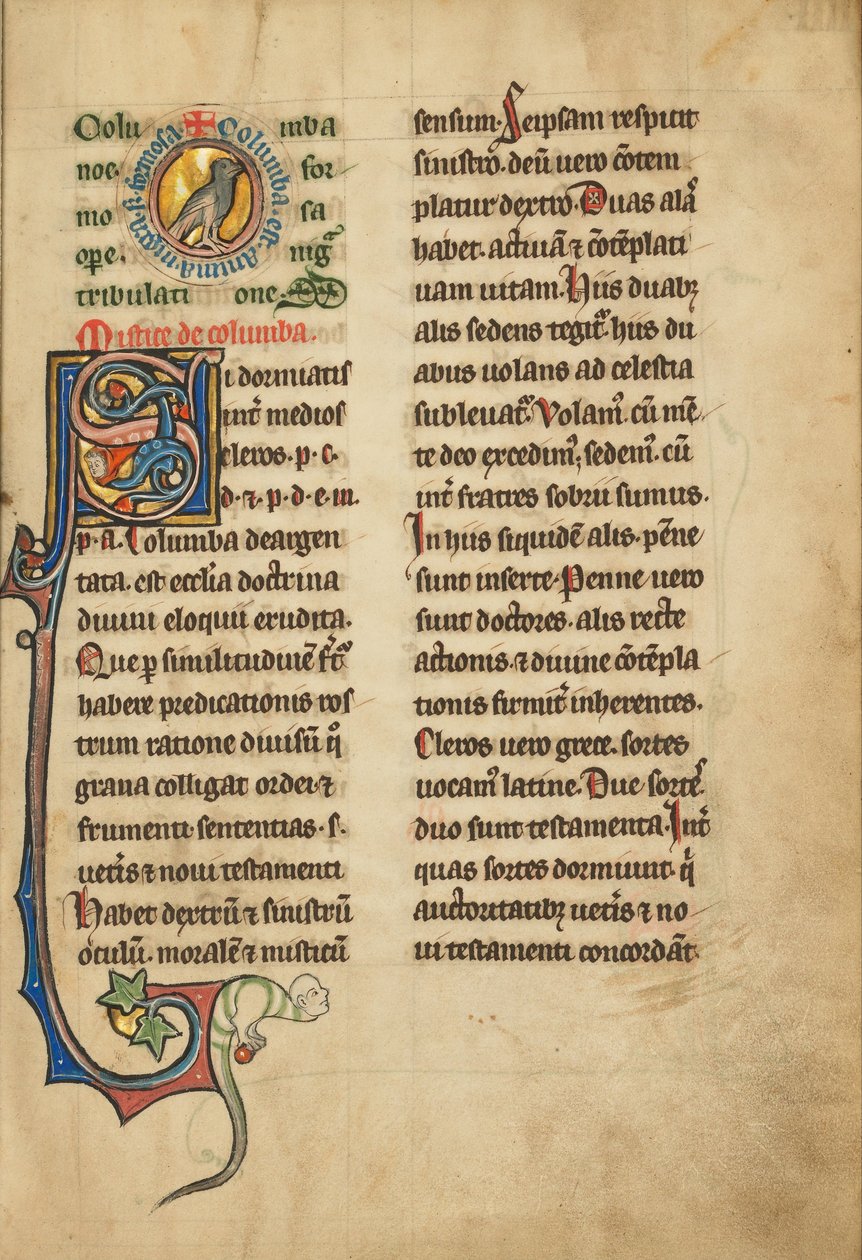 Colu mba
noe. for
mo sa
ope. nigͣ
tribulati one.
Columba. est. anima. nigra. ꝫ. formosa.
Mistice de columba.
Si dormiatis
int᷑ medios
cleros. p. c.
d. ⁊. p. d. e. in.
p. a. Columba deargen
tata. est eccl̄ia doctrina
diuini eloquii erudita.
Que ꝑ similitudinē f᷑t᷑
habere predicationis ros
trum ratione diuisū qͦ
grana colligat ordei ⁊
frumenti. sententias. s.
uet᷑is ⁊ noui testamenti
Habet dextrū ⁊ sinistrū
oculum. moralē ⁊ misticū
sensum. Seipsam respicit
sinistro. deū uero cōtem
platur dextro. Duas alas
habet. actiuā ⁊ cōtēplati
uam uitam. Hiis duabꝫ
alis sedens tegit᷑. hiis du
abus uolans ad celestia
subleuat᷑. Volamꝰ. cū mē
te deo excedimꝰ; sedemꝰ. cū
int᷑ fratres sobrii sumus.
In hiis siquidē alis. pēne
sunt inserte. Penne uero
sunt doctores. alis recte
actionis. ⁊ diuine cōtēpla
tionis firmit᷑ inherentes.
Cleros uero grece. sortes
uocamꝰ latine. Due sortes.
duo sunt testamenta. Int᷑
quas sortes dormiunt. qͥ
auctoritatibꝫ uet᷑is ⁊ no
ui testamenti concordāt.